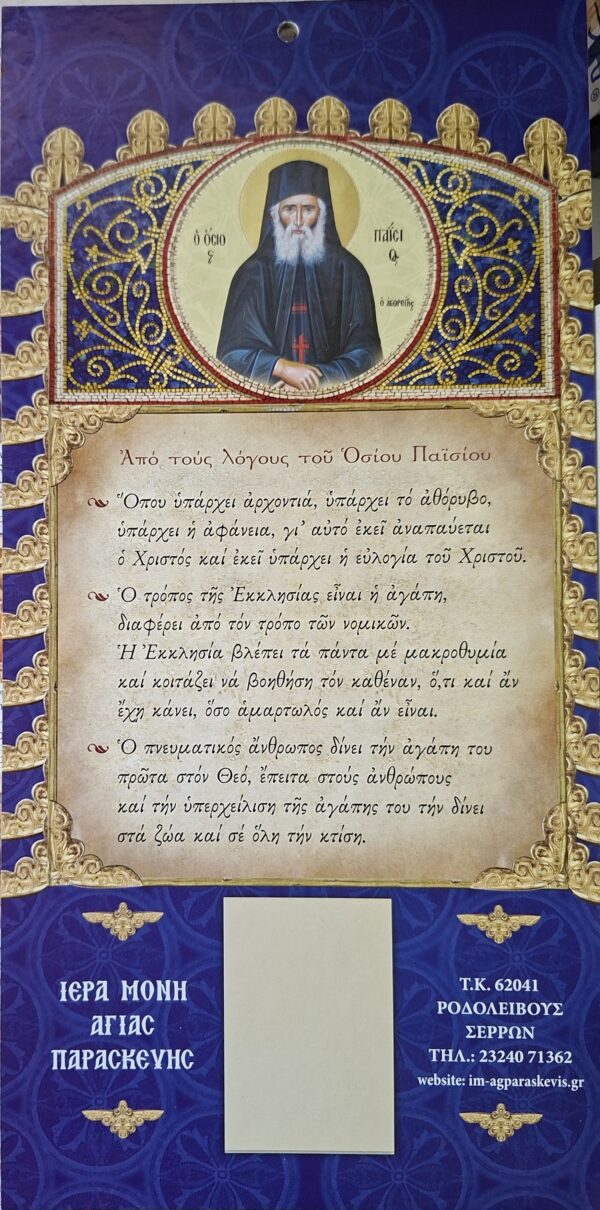 ὁ ὅσιος Παΐσιος
ὁ ἁγιορείτης
Ἀπό τούς λόγους τοῦ Ὁσίου Παϊσίου
Ὅπου ὑπάρχει ἀρχοντιά, ὑπάρχει τό ἀθόρυβο,
ὑπάρχει ἡ ἀφάνεια, γι' αὐτό ἐκεῖ ἀναπαύεται
ὁ Χριστός καί ἐκεῖ ὑπάρχει ἡ εὐλογία τοῦ Χριστοῦ.
Ὁ τρόπος τῆς Ἐκκλησίας εἶναι ἡ ἀγάπη,
διαφέρει ἀπό τόν τρόπο τῶν νομικῶν.
Ἡ Ἐκκλησία βλέπει τά πάντα μέ μακροθυμία
καί κοιτάζει νά βοηθήση τόν καθέναν, ὅ,τι καί ἄν
ἔχη κάνει, ὅσο ἁμαρτωλός καί ἄν εἶναι.
Ὁ πνευματικός ἄνθρωπος δίνει τήν ἀγάπη του
πρῶτα στόν Θεό, ἔπειτα στούς ἀνθρώπους
καί τήν ὑπερχείλιση τῆς ἀγάπης του τήν δίνει
στά ζώα καί σέ ὅλη τήν κτίση.
ΙΕΡΑ ΜΟΝΗ
ΑΓΙΑΣ
ΠΑΡΑΣΚΕΥΗΣ
Τ.Κ. 62041
ΡΟΔΟΛΕΙΒΟΥΣ
ΣΕΡΡΩΝ
ΤΗΛ.: 23240 71362
website: im-agparaskevis.gr